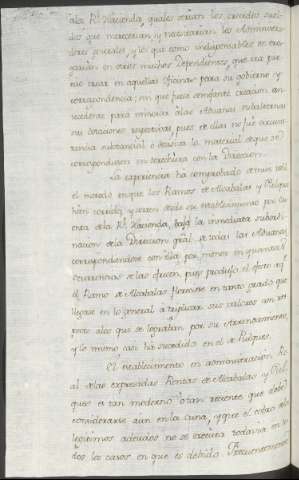 ala Rl. Hacienda, quales serian los crecidos suel-
dos que merecerian y necesitarian los Administra-
dores generales, y los que como indispensables se ero-
garian en otros muchos Dependientes, que era pre-
ciso criar en aquellas oficinas para su gobierno y
correspondencia; sin que fuera semejante creacion an-
tecedente para minorar alas Aduanas subalternas
sus dotaciones respectivas, pues de ellas no fue
substancial o desunia la material que se
correspondiesen en derechura con la Direccion.
La experiencia ha comprobado ser mas util
el metodo en que los Ramos de Alcabalas y Pulques
han corrido, y corren desde su establecimiento por cu-
enta dela Rl. Hacienda, baxo la inmediata subordi-
nacion dela Direccion gral. de todas las Aduanas,
correspondiendose con ella por menor en quantas
ocurrencias se les ofrecen, pues produxo el efecto de que
el Ramo de Alcabalas floreciese en tanto grado que
llegase en lo general a triplicar sus valores con res-
pecto alos que se lograban por su Arrendamiento,
y lo mismo casi ha sucedido en el de Pulques.
El establecimiento en administracion Re-
al delas expresadas Rentas de Alcabalas y Pul-
ques es tan moderno o tan reciente que debe
considerarse aun en la cuna, y que el cobro delos
legitimos adeudos no se executa todavia en to-
dos los casos en que es debido. Frecuentemente